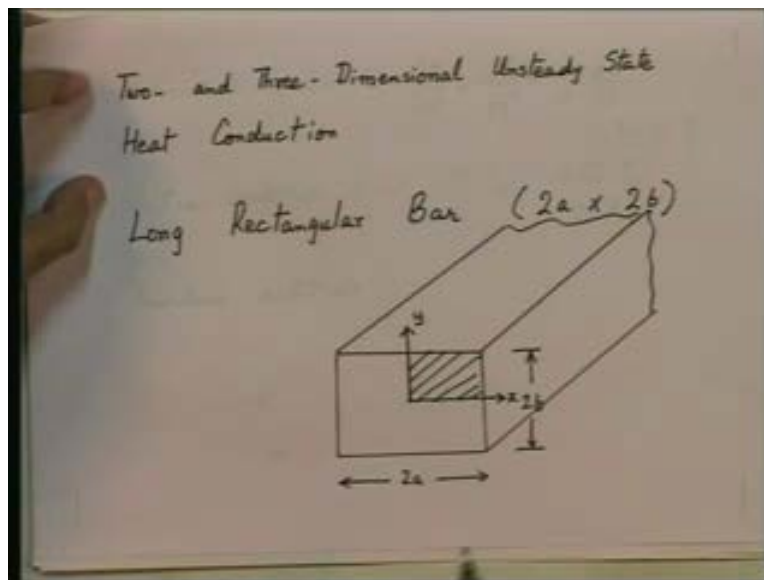 Two- and Three-Dimensional Unsteady State
Heat Conduction
Long Rectangular Bar (2a x 2b)
y
x
2b
2a